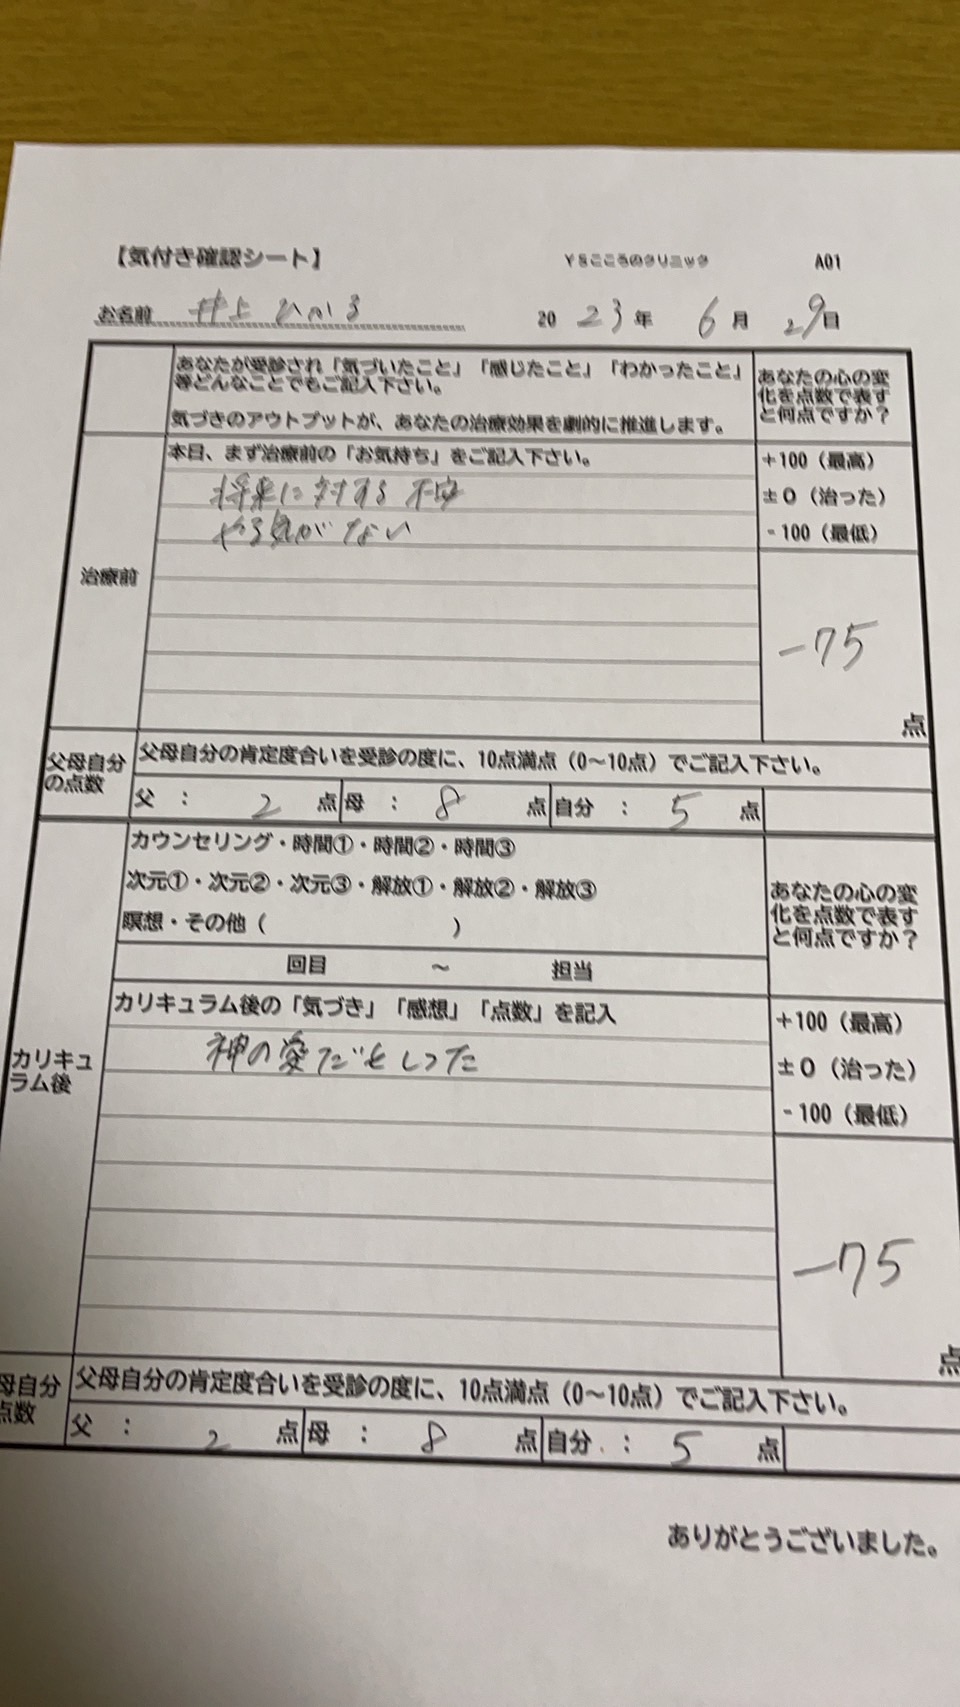 【気付き確認シート】 YSこころのクリニック A01
お名前 井上 ひかる 2023年 6月 29日
あなたが受診され「気づいたこと」「感じたこと」「わかったこと」
等どんなことでもご記入下さい。
気づきのアウトプットが、あなたの治療効果を劇的に推進します。
あなたの心の変
化を点数で表す
と何点ですか？
治療前
本日、まず治療前の「お気持ち」をご記入下さい。
将来に対する不安
やる気がない
+100（最高）
±0（治った）
-100（最低）
-75
点
父母自分
の点数
父母自分の肯定度合いを受診の度に、10点満点（0～10点）でご記入下さい。
父 ： 2 点 母 ： 8 点 自分 ： 5 点
カウンセリング・時間①・時間②・時間③
次元①・次元②・次元③・解放①・解放②・解放③
瞑想・その他（ ）
回目 ～ 担当
あなたの心の変
化を点数で表す
と何点ですか？
カリキュ
ラム後
カリキュラム後の「気づき」「感想」「点数」を記入
神の愛だとしった
+100（最高）
±0（治った）
-100（最低）
-75
点
母自分
点数
父母自分の肯定度合いを受診の度に、10点満点（0～10点）でご記入下さい。
父 ： 2 点 母 ： 8 点 自分 ： 5 点
ありがとうございました。